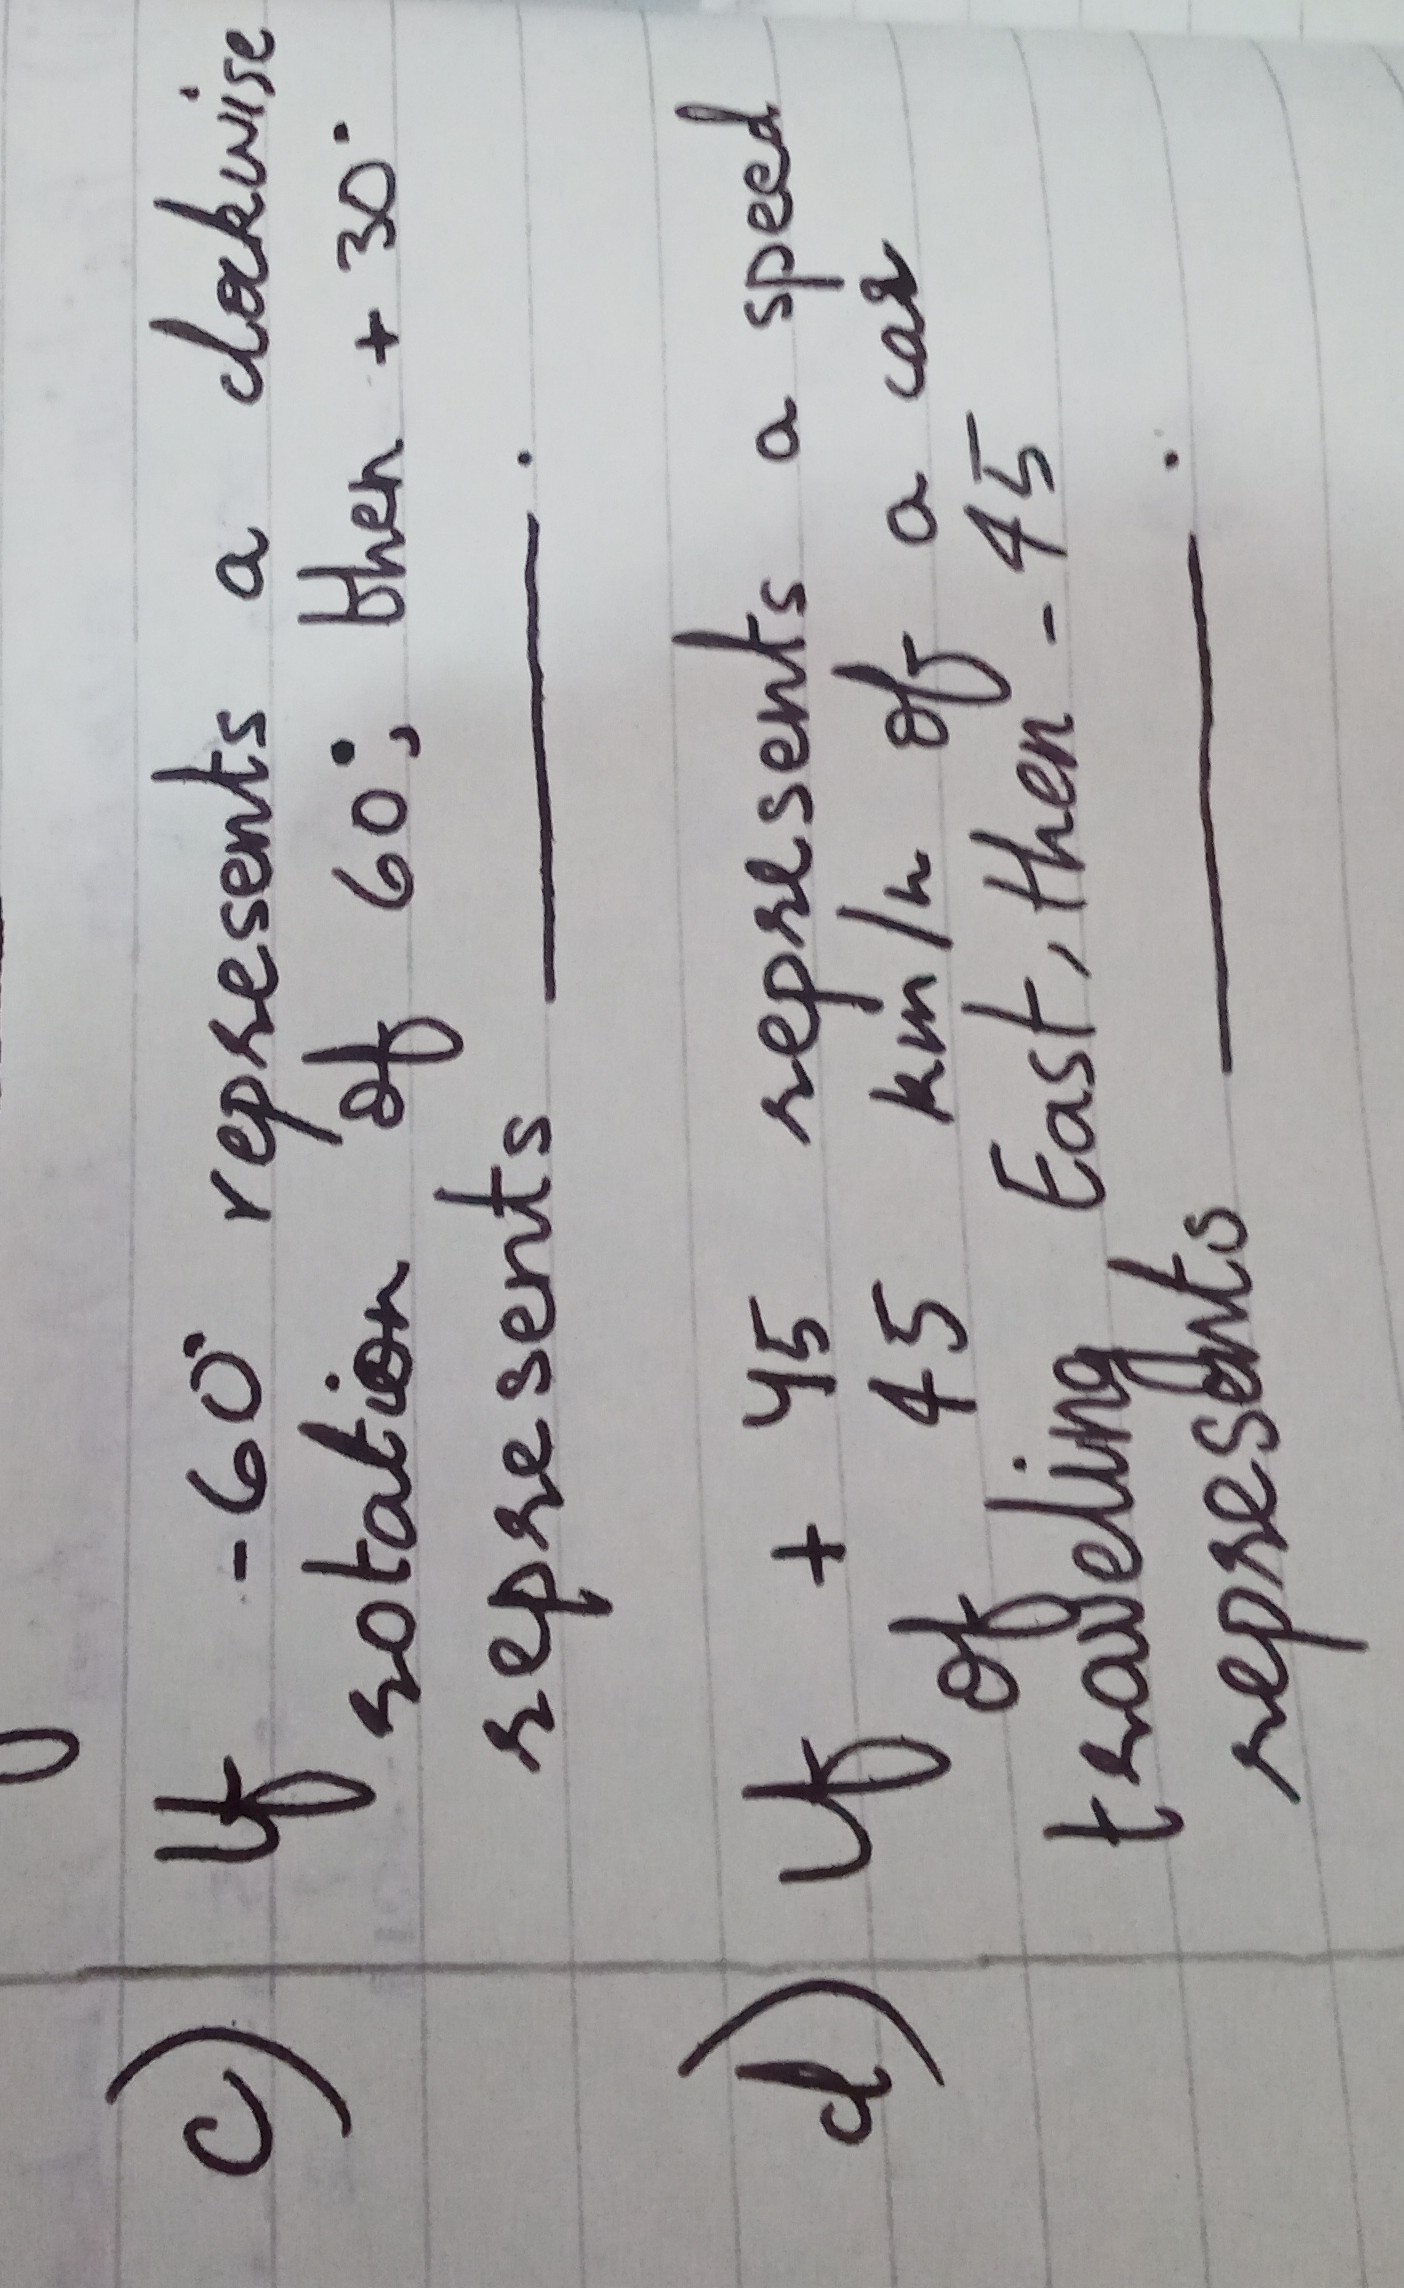 c) If -60° represents a clockwise
rotation of 60°, then +30°
represents ________.
d) If + 45 represents a speed
of 45 km/h of a car
traveling East, then -45
represents ________.